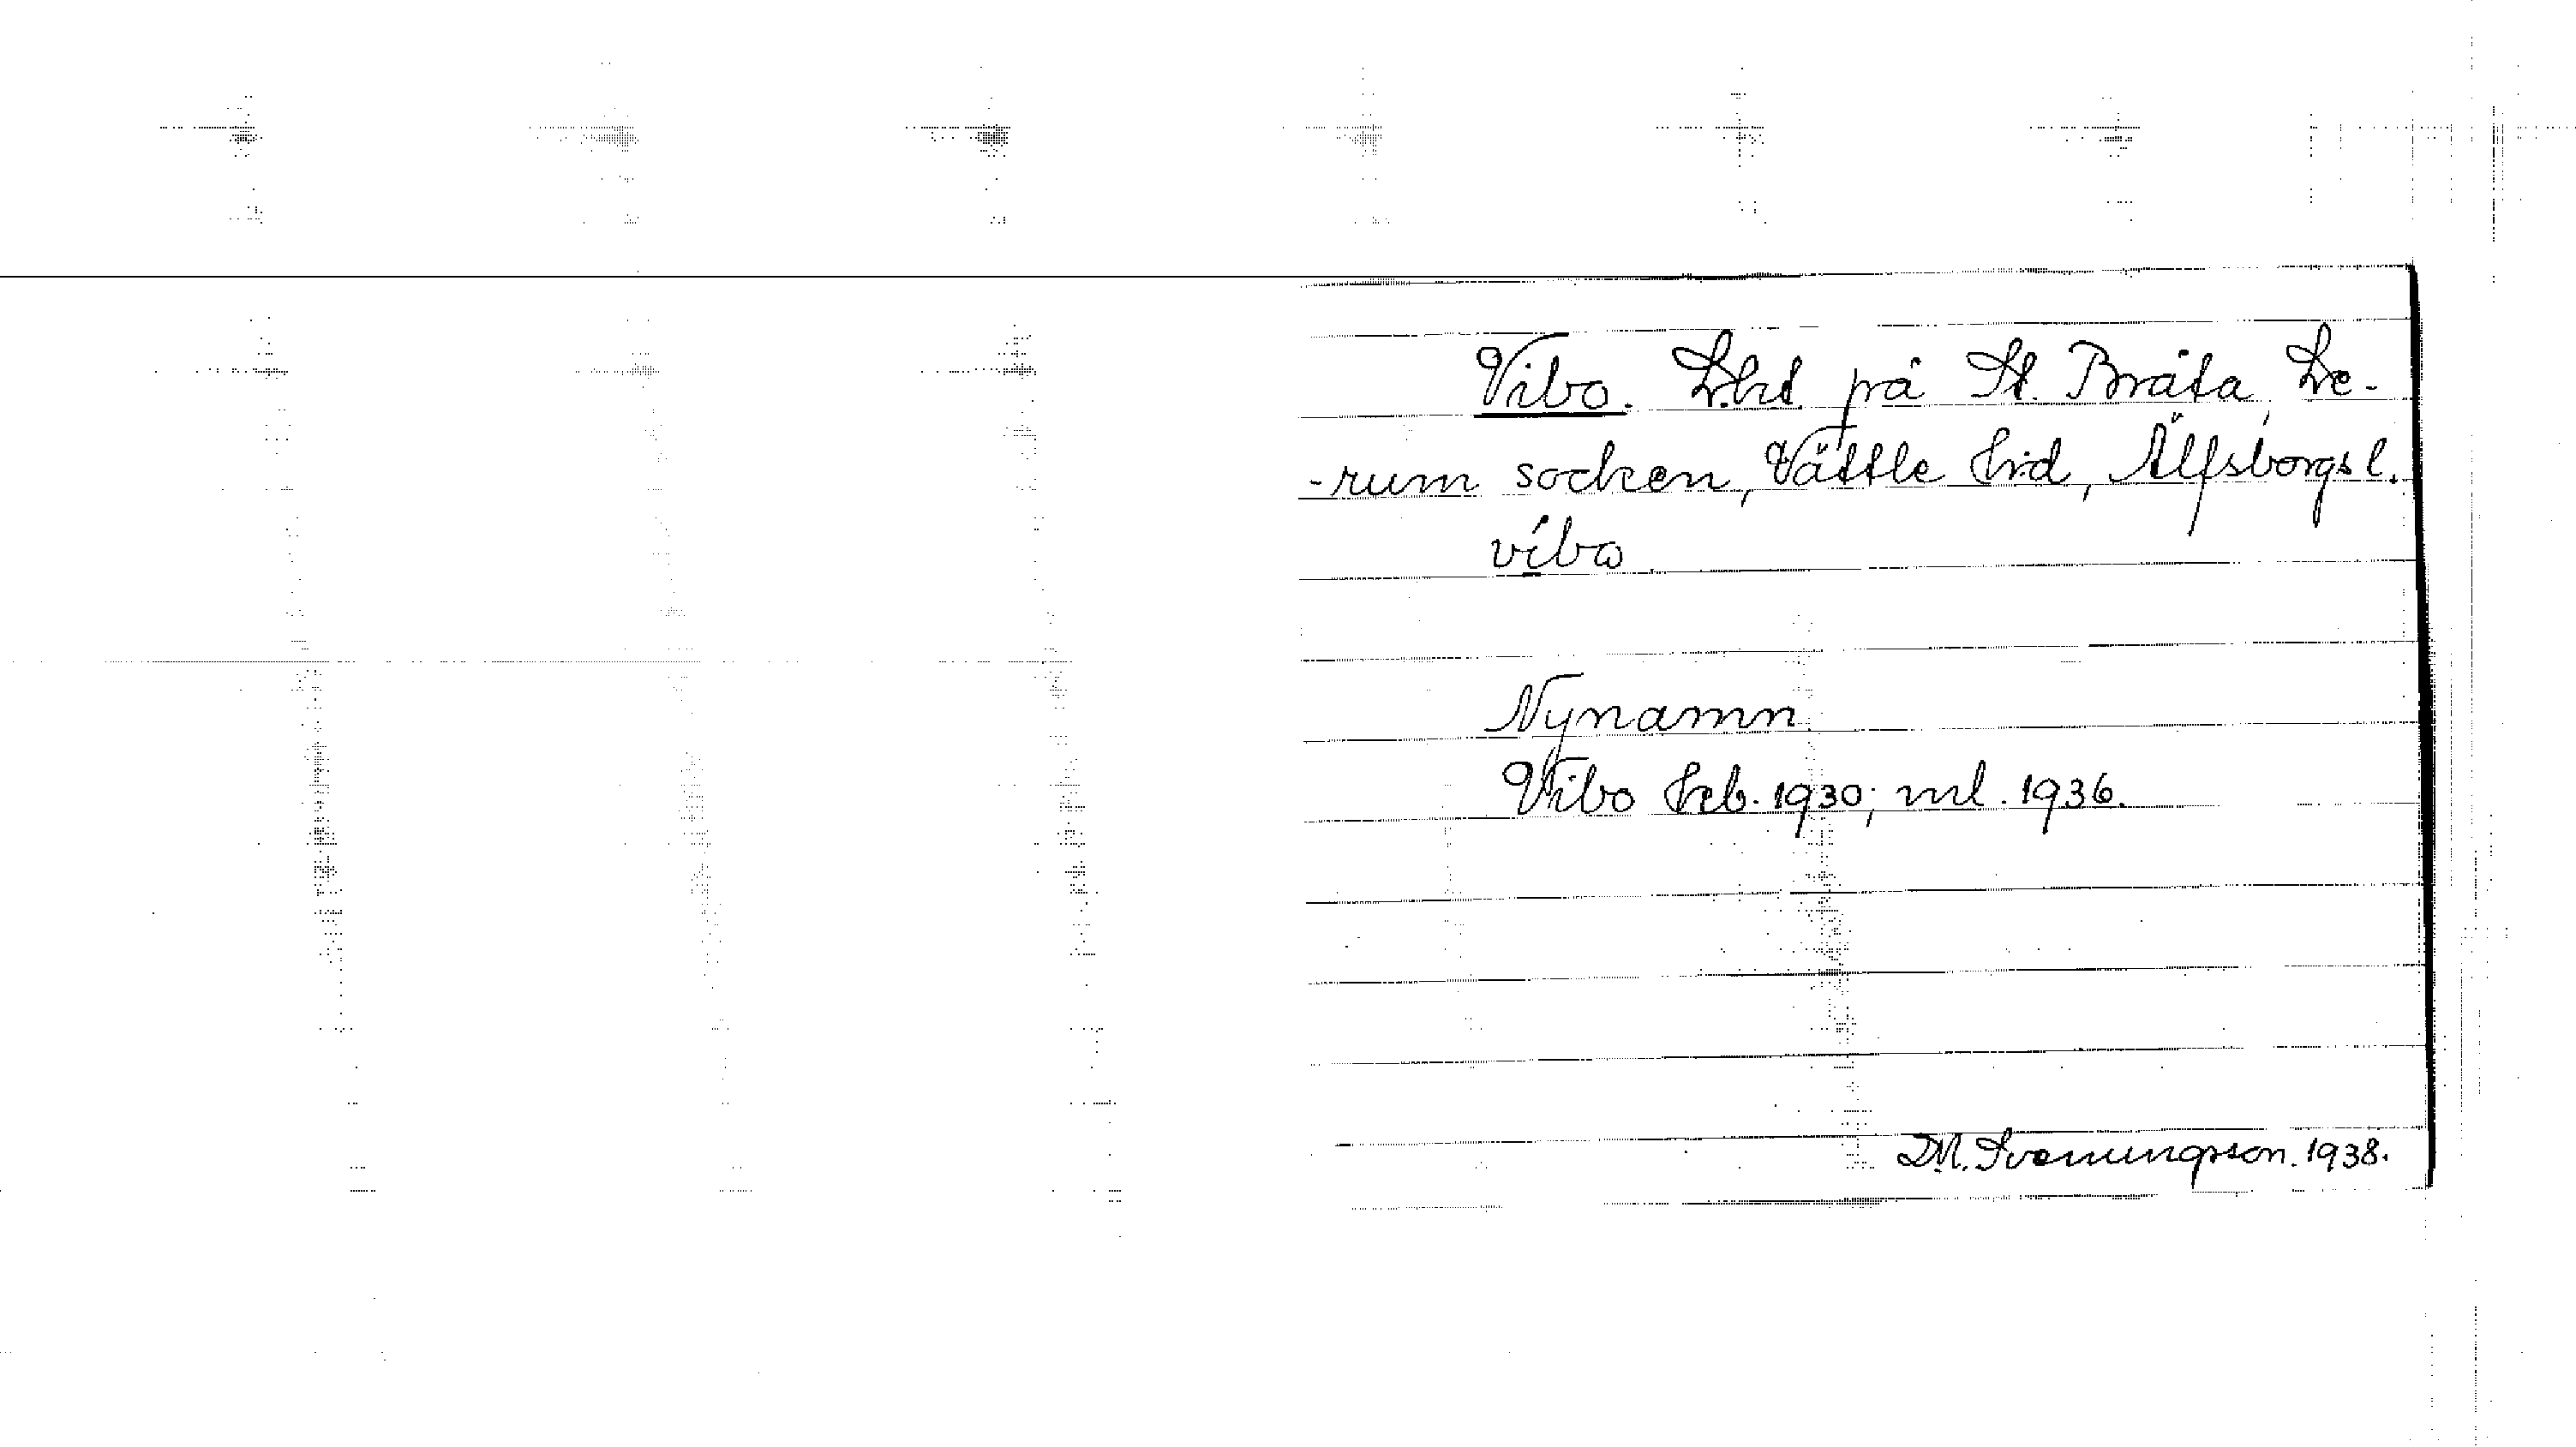 Vibo. Lht. på St. Bråta, Le-
-rum socken, Vättle hrd, Älfsborgs l.
víbo
Nynamn
Vibo hrb. 1930; ml. 1936.
D.M. Svenungsson. 1938.